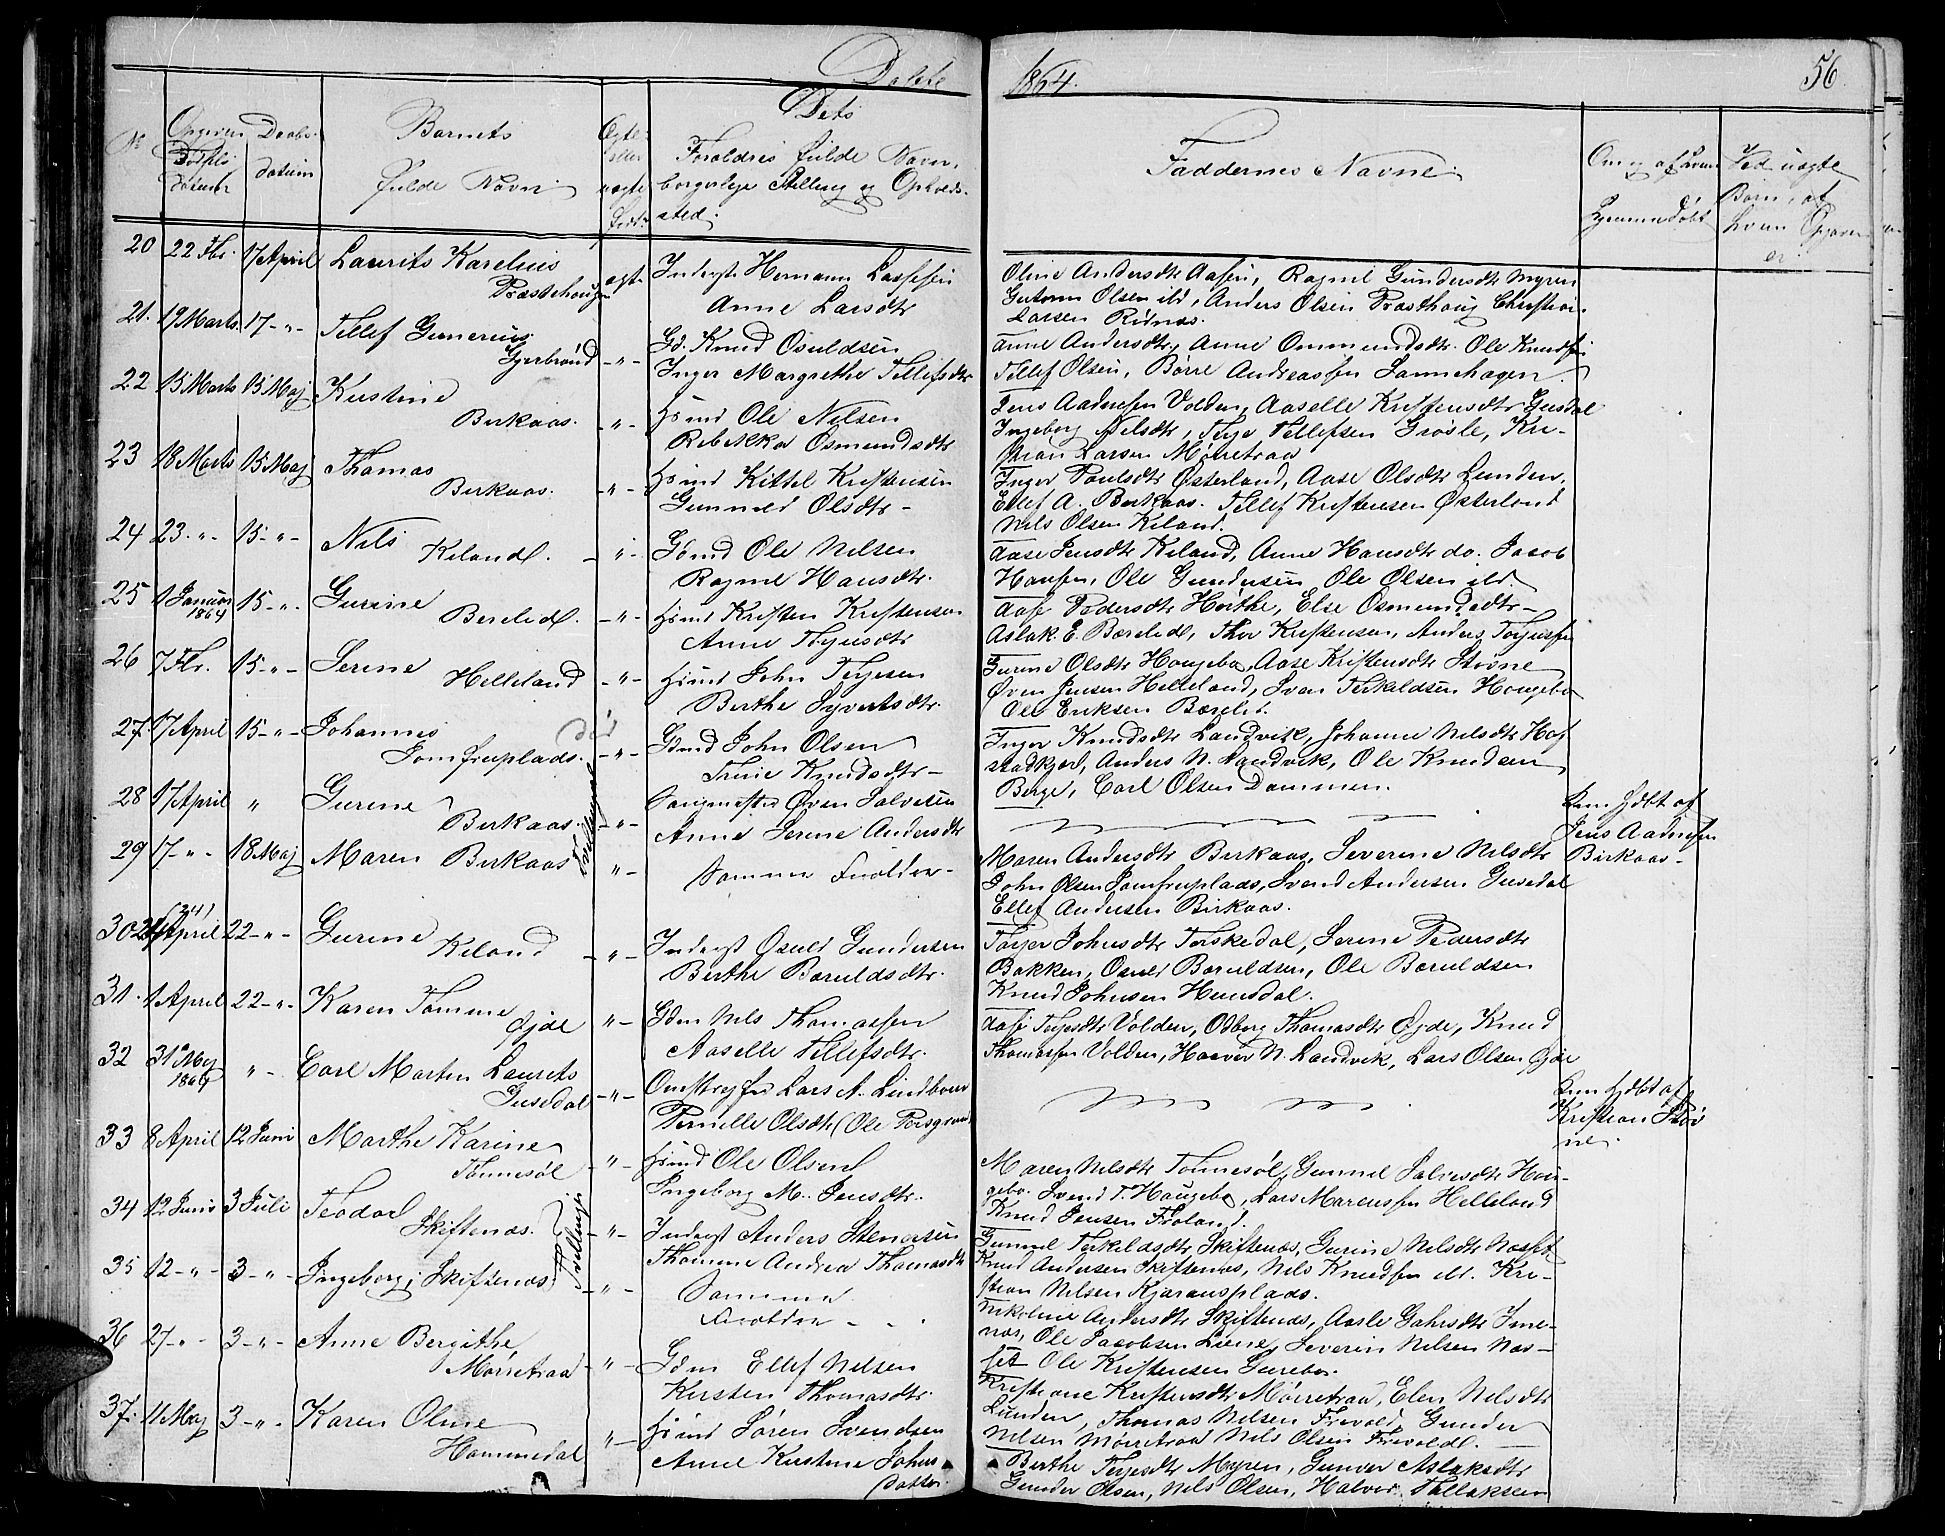 Døbte
1864.
56
No
Opgiven Fødsels datum
Daabs-datum
Barnets fulde Navn
Ægte eller uægte født
Dets Forældres fulde Navn, borgerlige Stilling og Opholds-sted.
Faddernes Navne
Om og af hvem hjemmedøbt
Ved uægte Børn, af hvem Opgaven er
20 22 Fbr. 17 April Laurits Karelius
Præstehoug
ægte
Inderst Hermann Lassesen
Anne Larsdtr
Oline Andersdtr Aasen, Ragnil Gundersdtr Myren
Guttorm Olsen ibd, Anders Olsen Præsthoug Christian
Larsen Rødnæs.
21. 19 Marts 17 - " - Tellef Gunerius
- " -
Gd. Knud Osuldsen
Inger Margrethe Tellefsdtr
Anne Andersdtr, Anne Ommundsdtr. Ole Knudsen
Tellef Olsen, Børre Andreassen Lannehagen
22 15 Marts 15 Maj Kirstine
Birkaas. - " -
Hsmd Ole Nilsen
Rebekka Osmundsdtr
Jens Aadnesen Volden, Aaselle Kristensdtr Gusdal
Ingeborg Nilsdtr, Terje Tellefsen Grøsle, Kri-
stian Larsen Mørretraa
23 18 Marts 15 Maj Thomas
Birkaas. - " -
Hsmd Kittel Kristensen
Gunnild Olsdtr -
Inger Poulsdtr Østerland, Aase Olsdtr Lunden.
Ellef A. Birkaas. Tellef Kristensen Østerland
Nils Olsen Kiland.
24 23. " - 15 - " - Nils
Kiland. - " -
Gdmd Ole Nilsen
Ragne Hansdtr.
Aase Jensdtr Kiland, Anne Hansdtr do. Jacob
Hansen, Ole Gundersen, Ole Olsen ibd.
25 1 Januar 1864 15 - " - Gurine
Berelid. - " -
Hsmd Kristen Kristensen
Anne Terjesdtr
Aase Pedersdtr Heithe, Else Osmundsdtr -
Aslak E. Bærelid, Thor Kristensen, Anders Torjussen
26 7 Fbr. 15 - " - Serine
Helleland - " -
Hsmd John Terjesen
Berthe Syvertsdtr.
Gurine Olsdtr Hougebo, Aase Kristensdtr Støvne
Øven Jensen Helleland, Sven Terkeldsen Hougebo
Ole Eriksen Bærelid.
27. 17 April 15 - " - Johannes
Jomfruplads. - " -
Gdmd John Olsen
Trine Knudsdtr -
Inger Knudsdtr Landvik, Johanne Nilsdtr Hof
stadkjær, Anders N. Landvik, Ole Knudsen
Berge, Carl Olsen Dammen.
28 17 April " Gurine
Birkaas. - " -
Tvillinger
Øven Salvesen
Anne Serine Andersdtr
Hjm hdøbt af
Jens Aadnesen
Birkaas -
29 17 - " - 18 Maj Maren Birkaas " -
Samme Forældre -
Maren Andersdtr Birkaas, Severine Nilsdtr
John Olsen Jomfruplads, Svend Andersen Gusedal
Ellef Andersen Birkaas.
30 (24) April 22 - " - Gurine
Kiland - " -
Inderst Osuld Gundersen
Berthe Baruldsdtr.
Torjer Johnsdtr Torskedal, Serine Pedersdtr
Bakken, Osuld Baruldsen, Ole Baruldsen
Knud Johnsen Hunsdal.
31. 1 April 22 - " - Karen Tomine
Øjde " -
Gdm Nils Thomassen
Aaselle Tellefsdtr.
Aase Terjesdtr Volden, Odberg Thomasdtr Øjde, Knud
Thomassen Volden, Haaver N. Landvik, Lars Olsen Øjde
32 31 Maj 1864 " - Carl Martin Laurits
Gusedal - " -
Lars A. Lindboure
Pernille Olsdtr (Ole Porsgrund)
Hjm hdøbt af
Kristian Støv
ne.
33 8 April 12 Juni Marthe Karine
Tønnesøl - " -
Hsmd Ole Olsen
Ingeborg M. Jensdtr.
Maren Nilsdtr Tønnesøl, Gunnel Salvesdtr Hou-
gebo. Svend T. Hougebo, Lars Marcussen Helleland
Knud Jensen Froland.
34 12 Juni 3 Juli Teodor
Skiftenæs. - " -
Tvillinge
Inderst Anders Stenersen
Thomine Andrea Thomasdtr
Gunnel Terkeldsdtr Skiftenæs, Gurine Nilsdtr Næsset
Knud Andersen Skiftenæs, Nils Knudsen ibd. Kri-
stian Nilsen Kjøransplads.
35 12 - " - 3 - " - Ingeborg Skiftenæs - " -
Samme
Forældre -
Nikoline Andersdtr Skiftenæs, Aasle Gahrsdtr Ime-
næs, Ole Jacobsen Liene, Severin Nilsen Næs-
set Ole Kristensen Surebo.
36 27 - " - 3 - " - Anne Bergithe,
Mørretraa - " -
Gdm Ellef Nilsen
Kirsten Thomasdtr.
Kristiane Kristensdtr Mørretraa, Elen Nilsdtr
Lunden, Thomas Nilsen Frivold, Gunder
Nilsen Mørretraa Nils Olsen Frivold. -
37. 11 Maj 3 - " - Karen Oline
Hommedal " -
Hsmd Søren Svendsen
Anne Kirstine Johns
datter
Berthe Terjesdtr Myren, Gunvor Aslaksdtr
Gunder Olsen, Nils Olsen, Halvor Tallaksen